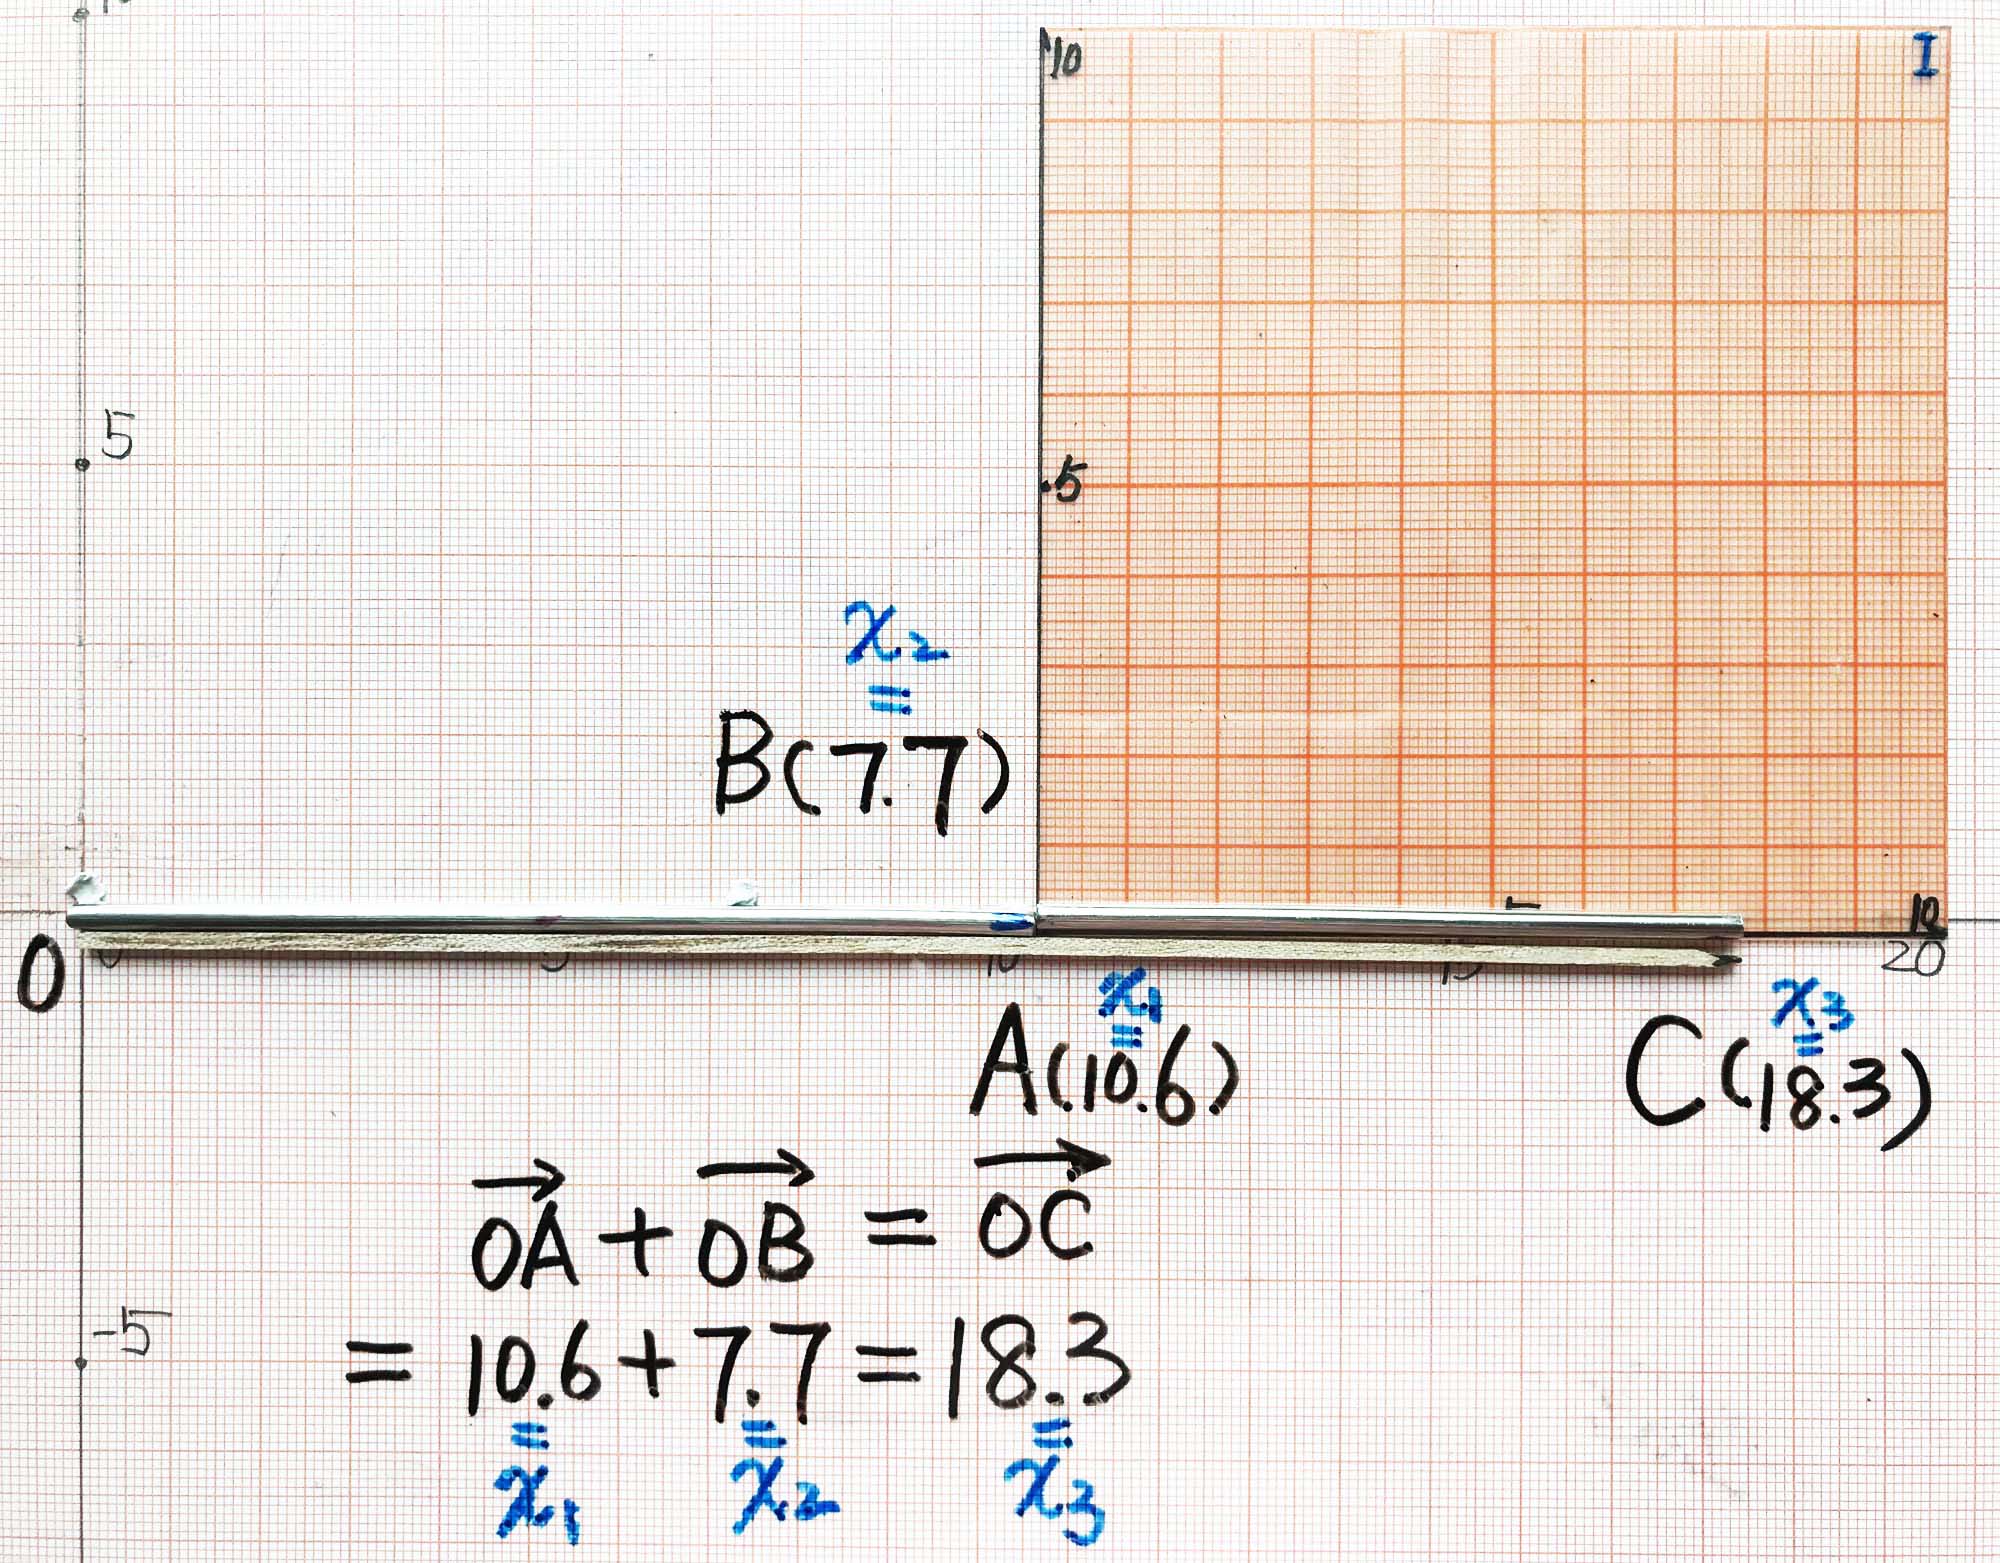 10
I
5
.5
x₂
=
B(7.7)
10
0
0 5 10 15 20
x₁ x₃
= =
A(10.6) C(18.3)
OA + OB = OC
-5
= 10.6 + 7.7 = 18.3
= = =
x₁ x₂ x₃